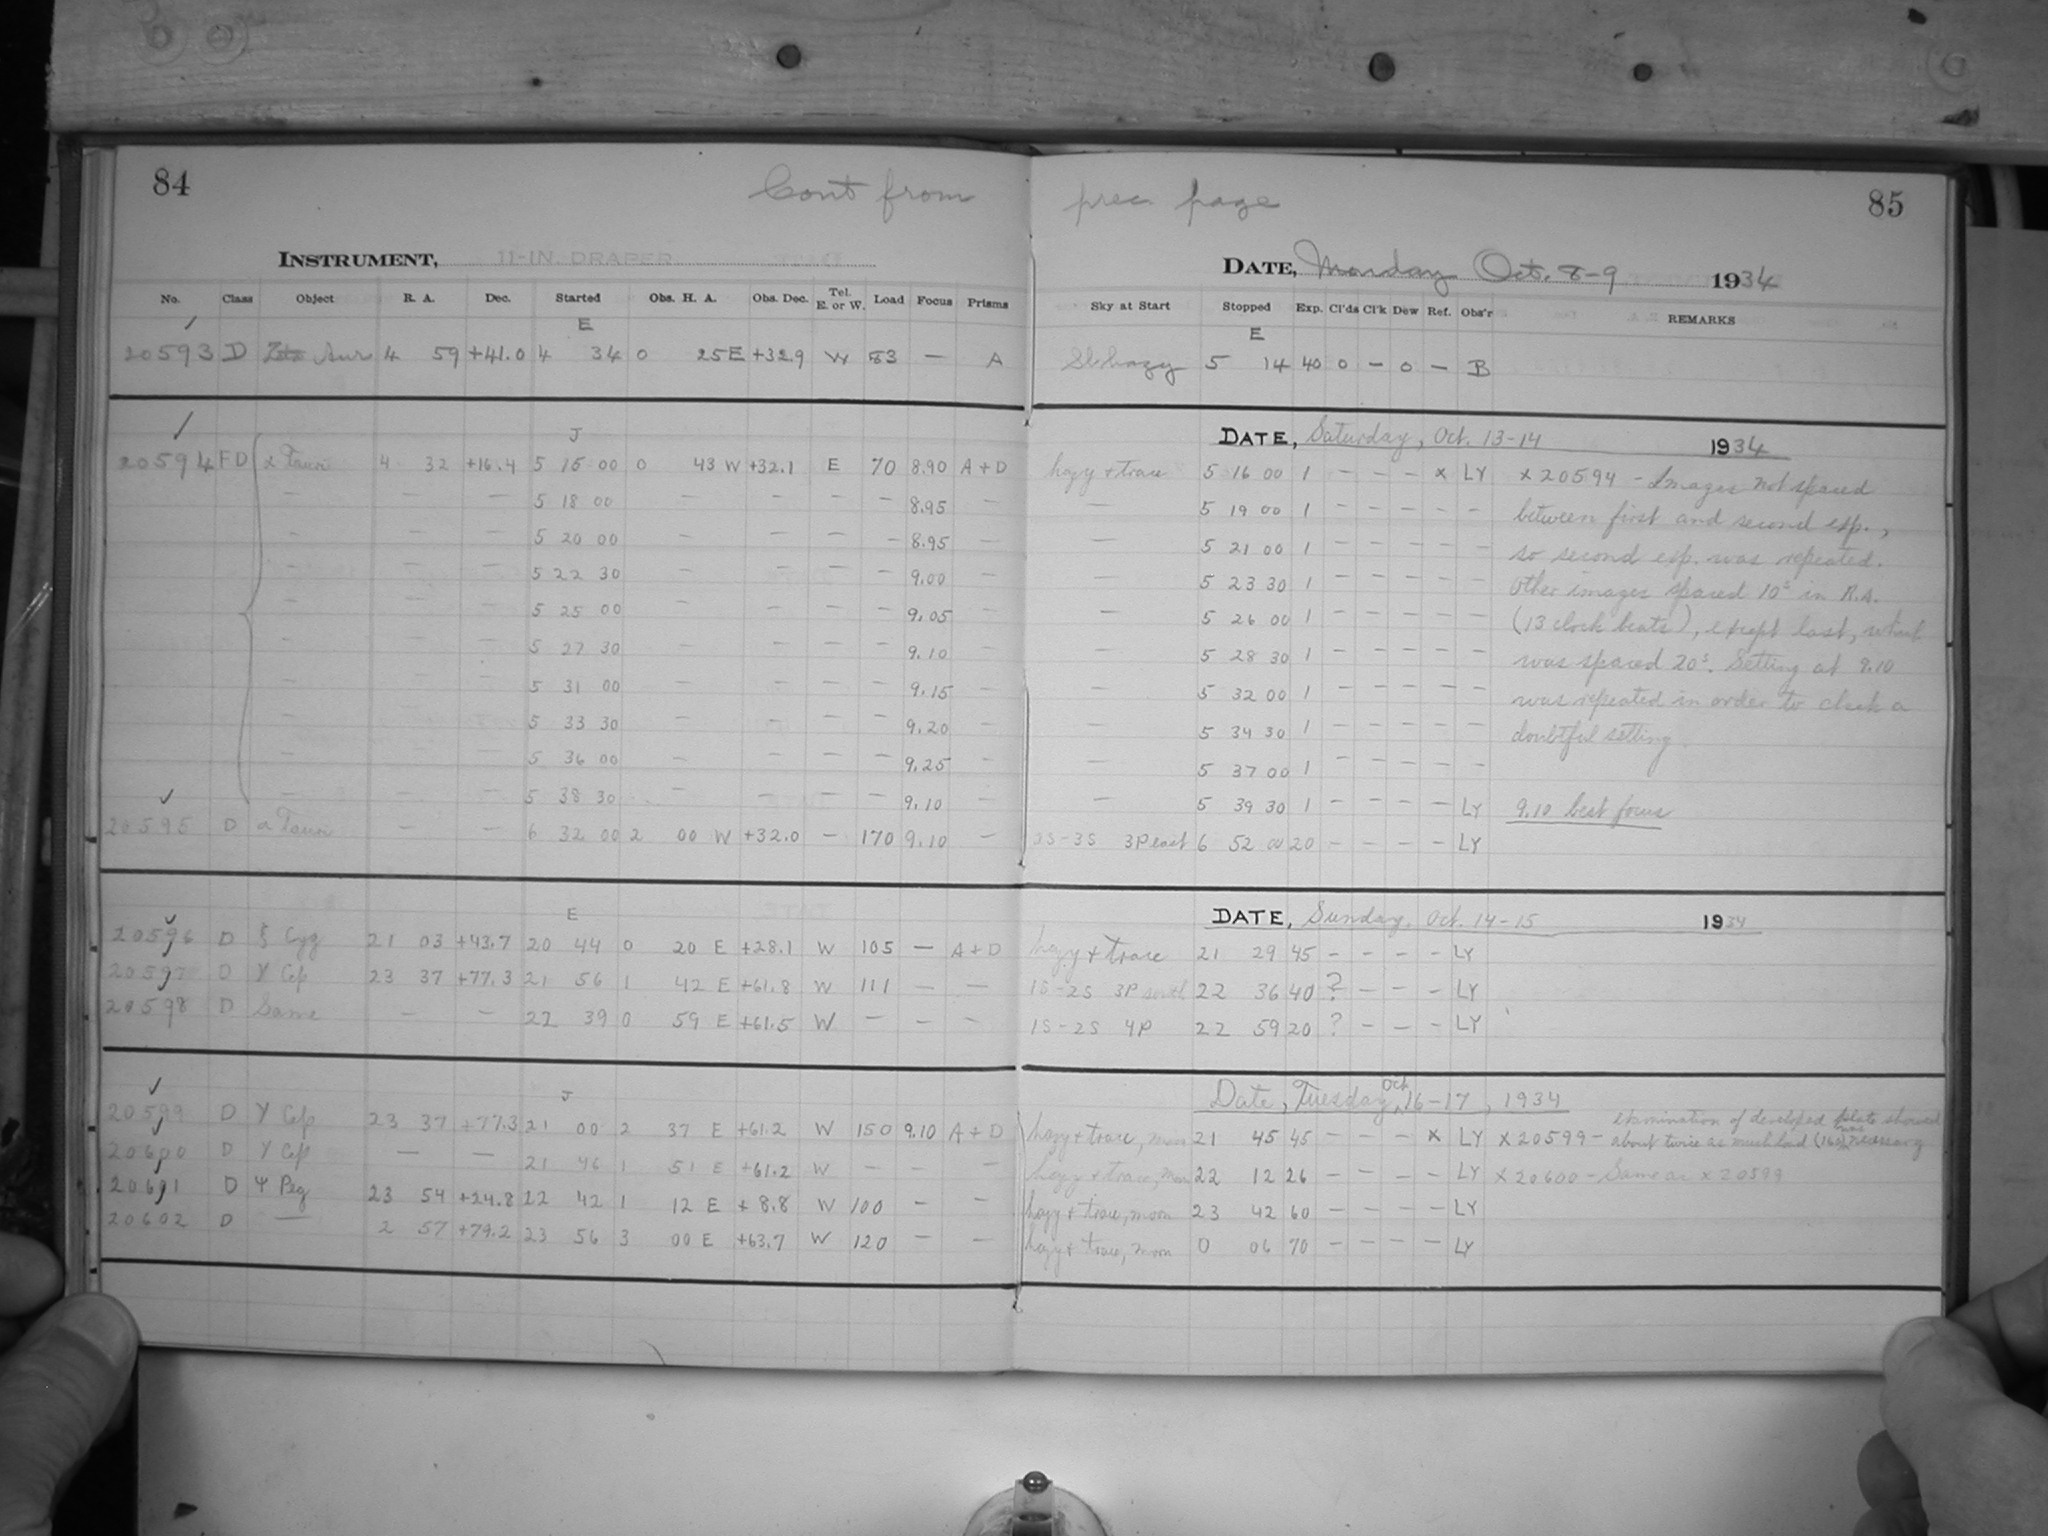 84 Cont from prec page 85
INSTRUMENT, 11-IN. DRAPER DATE, Monday Oct. 8-9 1934
No. Class Object R. A. Dec. Started Obs. H. A. Obs. Dec. Tel. E. or W. Load Focus Prisms Sky at Start Stopped Exp. Cl'ds Cl'k Dew Ref. Obs'r REMARKS
E E
20593 D Zeta Aur 4 59 +41.0 4 34 0 25 E +32.9 W 83 — A Sl hazy 5 14 40 0 — 0 — B
DATE, Saturday, Oct. 13-14 1934
J
20594 FD α Tauri 4 32 +16.4 5 15 00 0 43 W +32.1 E 70 8.90 A+D hazy + trace 5 16 00 1 — — — x LY x 20594 - Images not spaced
— — — 5 18 00 — — — — 8.95 — — 5 19 00 1 — — — — — between first and second exp.,
— — — 5 20 00 — — — — 8.95 — — 5 21 00 1 — — — — — so second exp. was repeated.
— — — 5 22 30 — — — — 9.00 — — 5 23 30 1 — — — — — Other images spaced 10s in R.A.
— — — 5 25 00 — — — — 9.05 — — 5 26 00 1 — — — — — (13 clock beats), except last, which
— — — 5 27 30 — — — — 9.10 — — 5 28 30 1 — — — — — was spaced 20s. Setting at 9.10
— — — 5 31 00 — — — — 9.15 — — 5 32 00 1 — — — — — was repeated in order to check a
— — — 5 33 30 — — — — 9.20 — — 5 34 30 1 — — — — — doubtful setting.
— — — 5 36 00 — — — — 9.25 — — 5 37 00 1 — — — — —
— — — 5 38 30 — — — — 9.10 — — 5 39 30 1 — — — — LY 9.10 best focus
20595 D α Tauri — — 6 32 00 2 00 W +32.0 — 170 9.10 — 2S-3S 3P east 6 52 00 20 — — — — LY
DATE, Sunday, Oct. 14-15 1934
E
20596 D ξ Cyg 21 03 +43.7 20 44 0 20 E +28.1 W 105 — A+D hazy + trace 21 29 45 — — — — LY
20597 D γ Cep 23 37 +77.3 21 56 1 42 E +61.8 W 111 — — 1S-2S 3P south 22 36 40 ? — — — LY
20598 D Same — — 22 39 0 59 E +61.5 W — — — 1S-2S 4P 22 59 20 ? — — — LY
Date, Tuesday, Oct. 16-17, 1934
J
20599 D γ Cep 23 37 +77.3 21 00 2 37 E +61.2 W 150 9.10 A+D hazy + trace, moon 21 45 45 — — — x LY x 20599 - examination of developed plate showed
about twice as much load (160) was necessary
20600 D γ Cep — — 21 46 1 51 E +61.2 W — — — hazy + trace, moon 22 12 26 — — — — LY x 20600 - Same as x 20599
20601 D ψ Peg 23 54 +24.8 22 42 1 12 E +8.8 W 100 — — hazy + trace, moon 23 42 60 — — — — LY
20602 D — 2 57 +79.2 23 56 3 00 E +63.7 W 120 — — hazy + trace, moon 0 06 70 — — — — LY